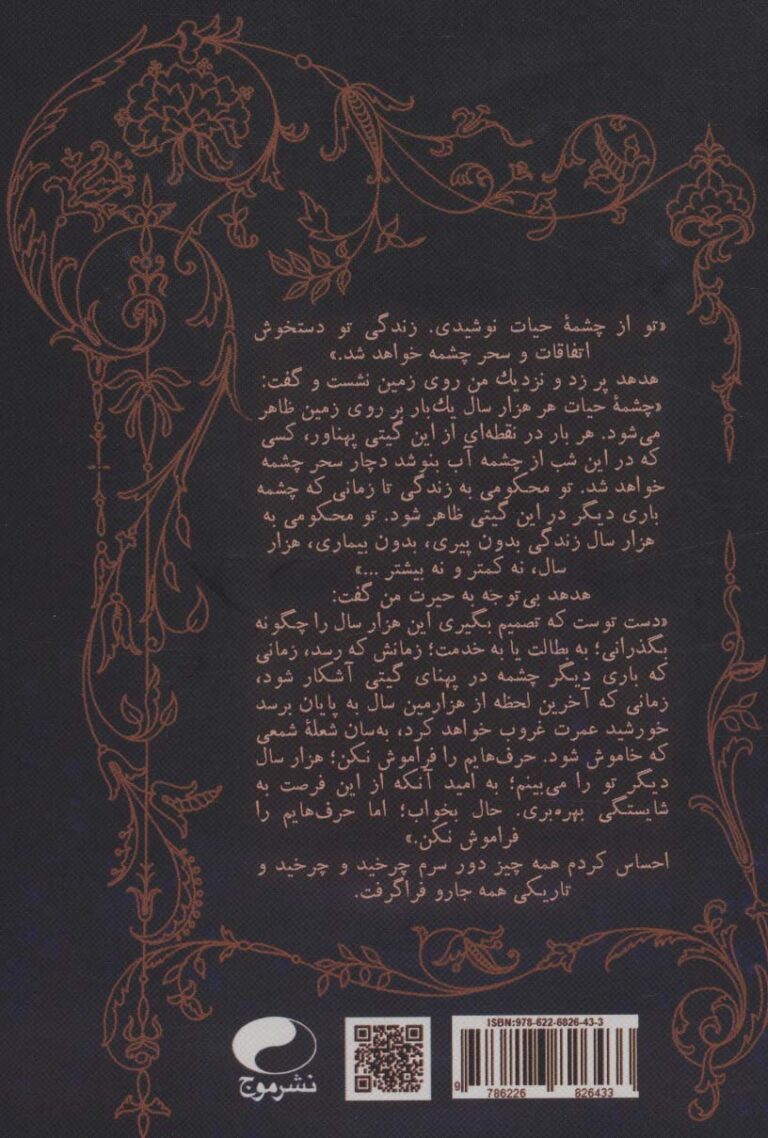 «تو از چشمهٔ حیات نوشیدی. زندگی تو دستخوش
اتفاقات و سحر چشمه خواهد شد.»
هدهد پر زد و نزدیك من روی زمین نشست و گفت:
«چشمهٔ حیات هر هزار سال یك‌بار بر روی زمین ظاهر
می‌شود. هر بار در نقطه‌ای از این گیتی پهناور، کسی
که در این شب از چشمه آب بنوشد دچار سحر چشمه
خواهد شد. تو محکومی به زندگی تا زمانی که چشمه
باری دیگر در این گیتی ظاهر شود. تو محکومی به
هزار سال زندگی بدون پیری، بدون بیماری، هزار
سال، نه کمتر و نه بیشتر ...»
هدهد بی‌توجه به حیرت من گفت:
«دست توست که تصمیم بگیری این هزار سال را چگونه
بگذرانی؛ به بطالت یا به خدمت؛ زمانش که رسد، زمانی
که باری دیگر چشمه در پهنای گیتی آشکار شود،
زمانی که آخرین لحظه از هزارمین سال به پایان برسد
خورشید عمرت غروب خواهد کرد، به‌سان شعلهٔ شمعی
که خاموش شود. حرف‌هایم را فراموش نکن؛ هزار سال
دیگر تو را می‌بینم؛ به امید آنکه از این فرصت به
شایستگی بهره‌بری. حال بخواب؛ اما حرف‌هایم را
فراموش نکن.»
احساس کردم همه چیز دور سرم چرخید و چرخید و
تاریکی همه جارو فراگرفت.
نشر موج
ISBN:978-622-6826-43-3
9 786226 826433